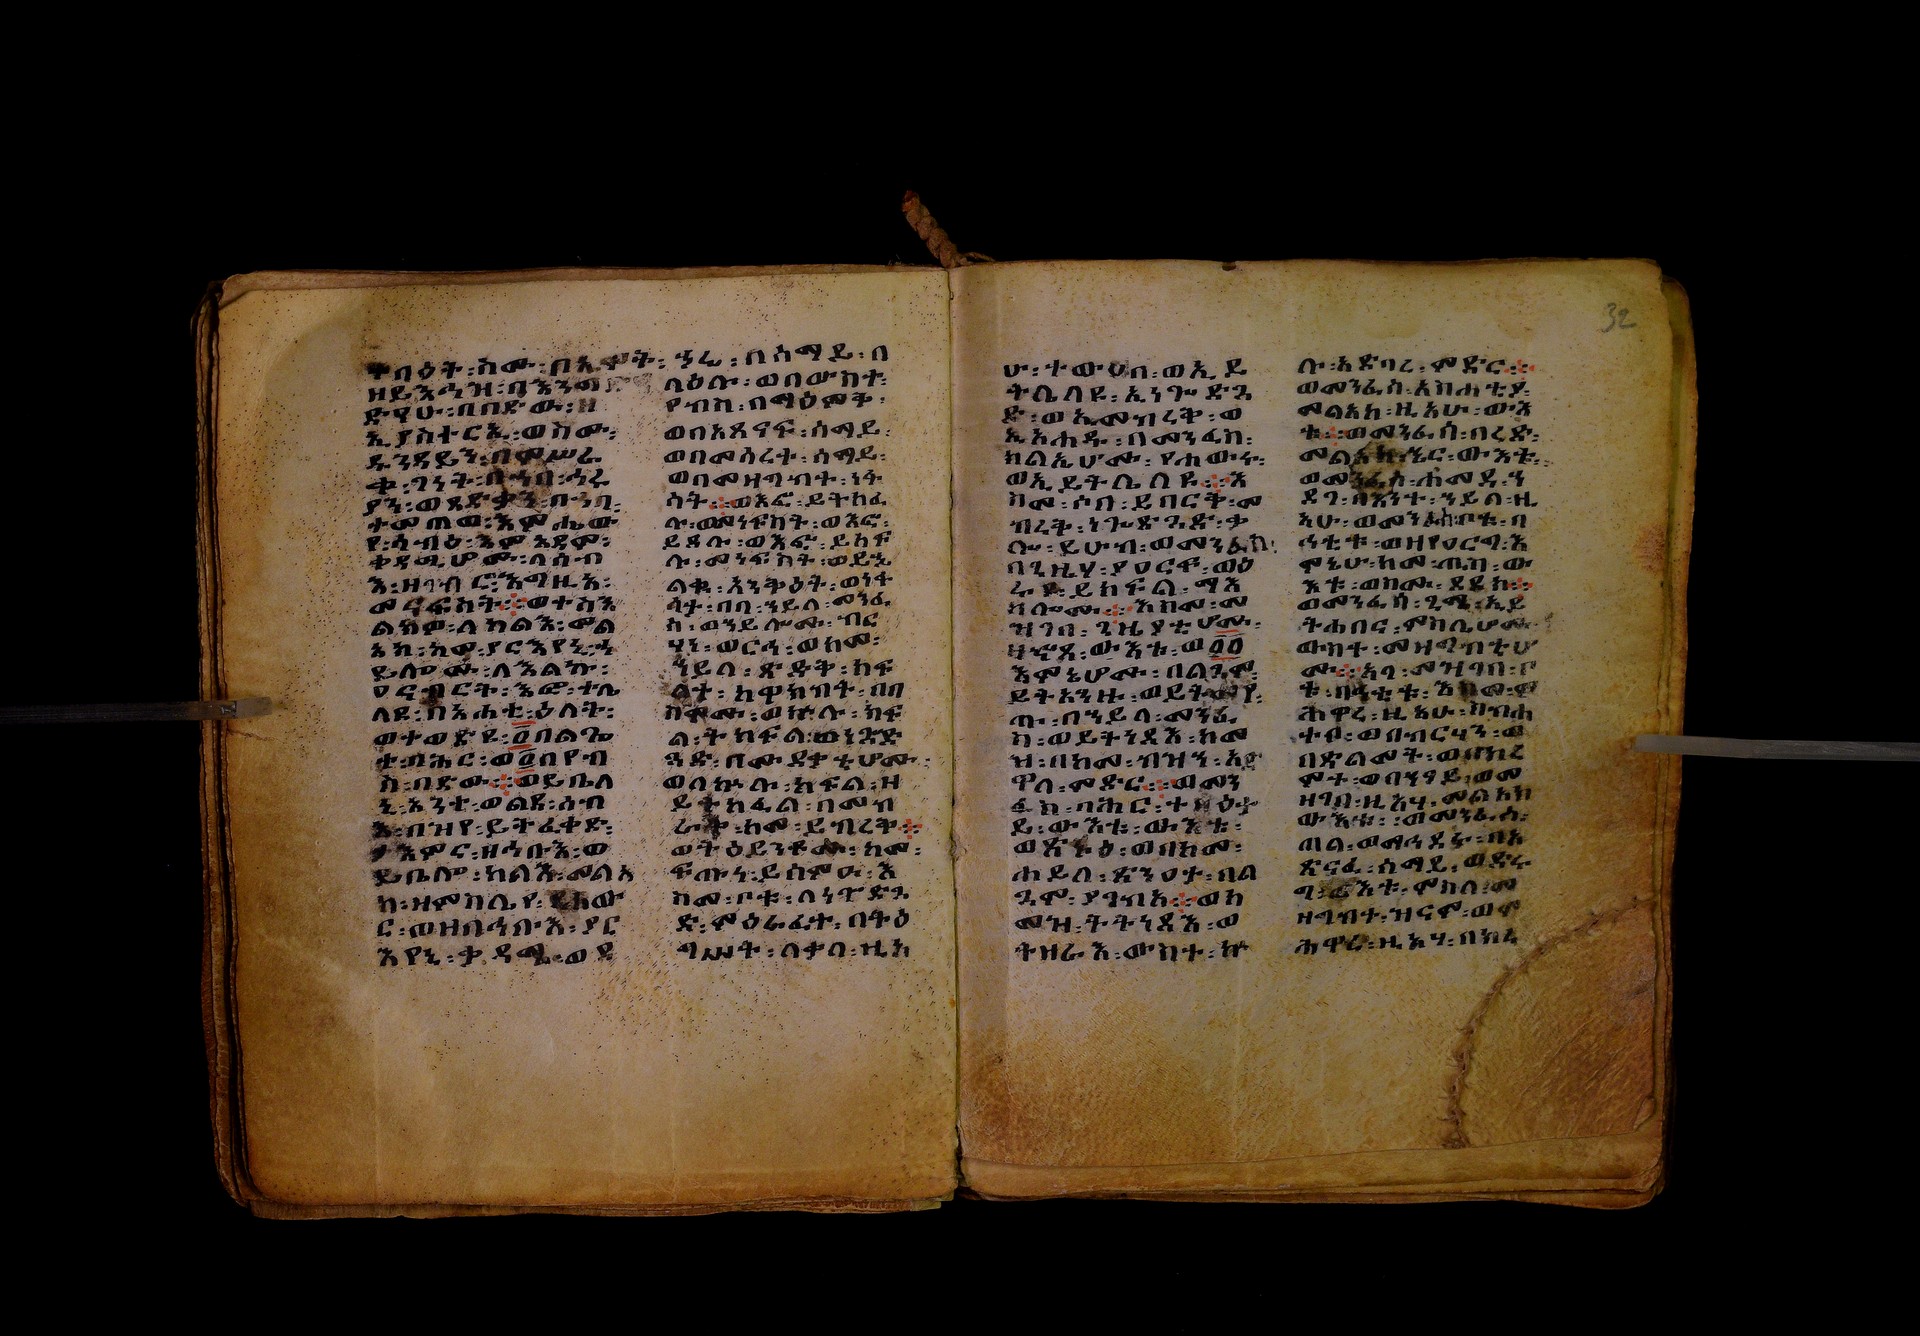 ተባዕት፡ስሙ፡ብሔሞት፡
ዘይእኅዝ፡በእንግ
ድዓሁ፡በበድው፡ዘ
ኢያስተርኢ፡ወስሙ፡
ዱንዳይን፡በምሥራ
ቀ፡ገነት፡በኀበ፡ኅሩ
ያን፡ወጻድቃን፡በኀበ፡
ተመጠወ፡እምሔው
የ፡ሳብዕ፡እም፡አዳም፡
ቀዳሚሆሙ፡ለሰብ
እ፡ዘገብሮ፡እግዚአ፡
መናፍስት፨ወተስእ
ልክዎ፡ለካልእ፡መል
አክ፡ከመ፡ያርእየኒ፡ኀ
ይሎሙ፡ለእልኩ፡
ዐናብርት፡እፎ፡ተሌ
ለዩ፡በአሐቲ፡ዕለት፡
ወተወድየ፡፩በልጐ
ተ፡ባሕር፡ወ፩በየብ
ሰ፡በድው፨ወይቤለ
ኒ፡አንተ፡ወልደ፡ሰብ
እ፡በዝየ፡ይትፈቀድ፡
ታእምር፡ዘኅቡእ፡ወ
ይቤሎ፡ካልእ፡መልአ
ክ፡ዘምስሌየ፡የሐው
ር፡ወዘበኅቡእ፡ያር
እየኒ፡ቀዳሚ፡ወደ
ኃሪ፡በሰማይ፡በ
ላዕሉ፡ወበውስተ፡
የብስ፡በማዕምቅ፡
ወበአጽናፍ፡ሰማይ፡
ወበመሰረት፡ሰማይ፡
ወበመዘግብተ፡ነፋ
ሳት፨ወእፎ፡ይትከፈ
ሉ፡መነፍስት፡ወእፎ፡
ይደሉ፡ወእፎ፡ይከፍ
ሉ፡መንፍስት፡ወይኄ
ልቁ፡አንቅዕት፡ወነፋ
ሳት፡በበ፡ኀይለ፡መንፈ
ስ፡ወኀይሎሙ፡ብር
ሃነ፡ወርኅ፡ወከመ፡
ኀይለ፡ጽድቅ፡ከፍ
ልት፡ከዋክብት፡በበ
ስሞሙ፡ወኵሉ፡ክፍ
ል፡ትከፍል፡ወነጐድ
ጓድ፡በሙዳቀቲሆሙ፡
ወለኵሉ፡ክፍል፡ዘ
ይትከፋል፡በመብ
ረቅ፡ከመ፡ይብረቅ፨
ወትዕይንቶሙ፡ከመ፡
ፍጡነ፡ይሰምዑ፡እ
ስመ፡ቦቱ፡ለነጐድጓ
ድ፡ምዕራፈተ፡በትዕ
ግሥት፡ለቀለ፡ዚአ
ሁ፡ተውህበ፡ወኢይ
ትሌለዩ፡ኢነጐድጓ
ድ፡ወኢመብረቅ፡ወ
ኢአሐዱ፡በመንፈስ፡
ክልኢሆሙ፡የሐውሩ፡
ወኢይትሌለዩ፨እ
ስመ፡ሶበ፡ይበርቅ፡መ
ብረቅ፡ነጐድጓድ፡ቃ
ሎ፡ይሁብ፡ወመንፈስ፡
በጊዜሃ፡ያዐርፍ፡ወዕ
ሩየ፡ይከፍል፡ማእ
ከሎሙ፨እስመ፡መ
ዝገበ፡ጊዜያቲሆሙ፡
ዘኆጻ፡ውእቱ፡ወ፩፩
እምኔሆሙ፡በልጓም፡
ይትአኀዙ፡ወይትመየ
ጡ፡በኀይለ፡መንፈ
ስ፡ወይትነዳእ፡ከመ
ዝ፡በከመ፡ብዝኀ፡አድ
ዋለ፡ምድር፨ወመን
ፈሰ፡ባሕር፡ተባዕታ
ይ፡ውእቱ፡ውእቱ፡
ወጽኑዕ፡ወበከመ፡
ሐይለ፡ጽንዐቱ፡በል
ጓሞ፡ያገብአ፨ወከ
መዝ፡ትትነዳእ፡ወ
ትዘራእ፡ውስተ፡ኵ
ሉ፡አድባረ፡ምድር፨
ወመንፈስ፡አስሐቲያ፡
መልአከ፡ዚአሁ፡ውእ
ቱ፨ወመንፈሰ፡በረድ፡
መልአክ፡ኄር፡ውእቱ፡
ወመንፈስ፡ሐመዳ፡ኀ
ደገ፡በእንተ፡ኀይለ፡ዚ
አሁ፡ወመንፈስ፡ቦቱ፡ባ
ሕቲቱ፡ወዘየዐርግ፡እ
ምኔሁ፡ከመ፡ጢስ፡ው
እቱ፡ወስሙ፡ደደክ፨
ወመንፈስ፡ጊሜ፡ኢይ
ትሐበር፡ምስሌሆሙ
ውስተ፡መዝግብቲሆ
ሙ፨አላ፡መዝገበ፡ቦ
ቱ፡በሕቲቱ፡እስመ፡ም
ሕዋረ፡ዚአሁ፡በስብሐ
ት፡ወበብርሃን፡ወ
በጽልመት፡ወበክረ
ምት፡ወበሐጋይ፡ወመ
ዝገበ፡ዚአሃ፡መልአክ
ውእቱ፡ወመንፈሰ፡
ጠል፡ማኅደሩ፡በአ
ጽናፈ፡ሰማይ፡ወድሩ
ግ፡ውእቱ፡ምስለ፡መ
ዘግብተ፡ዝናም፡ወም
ሕዋረ፡ዚአሃ፡በክረ